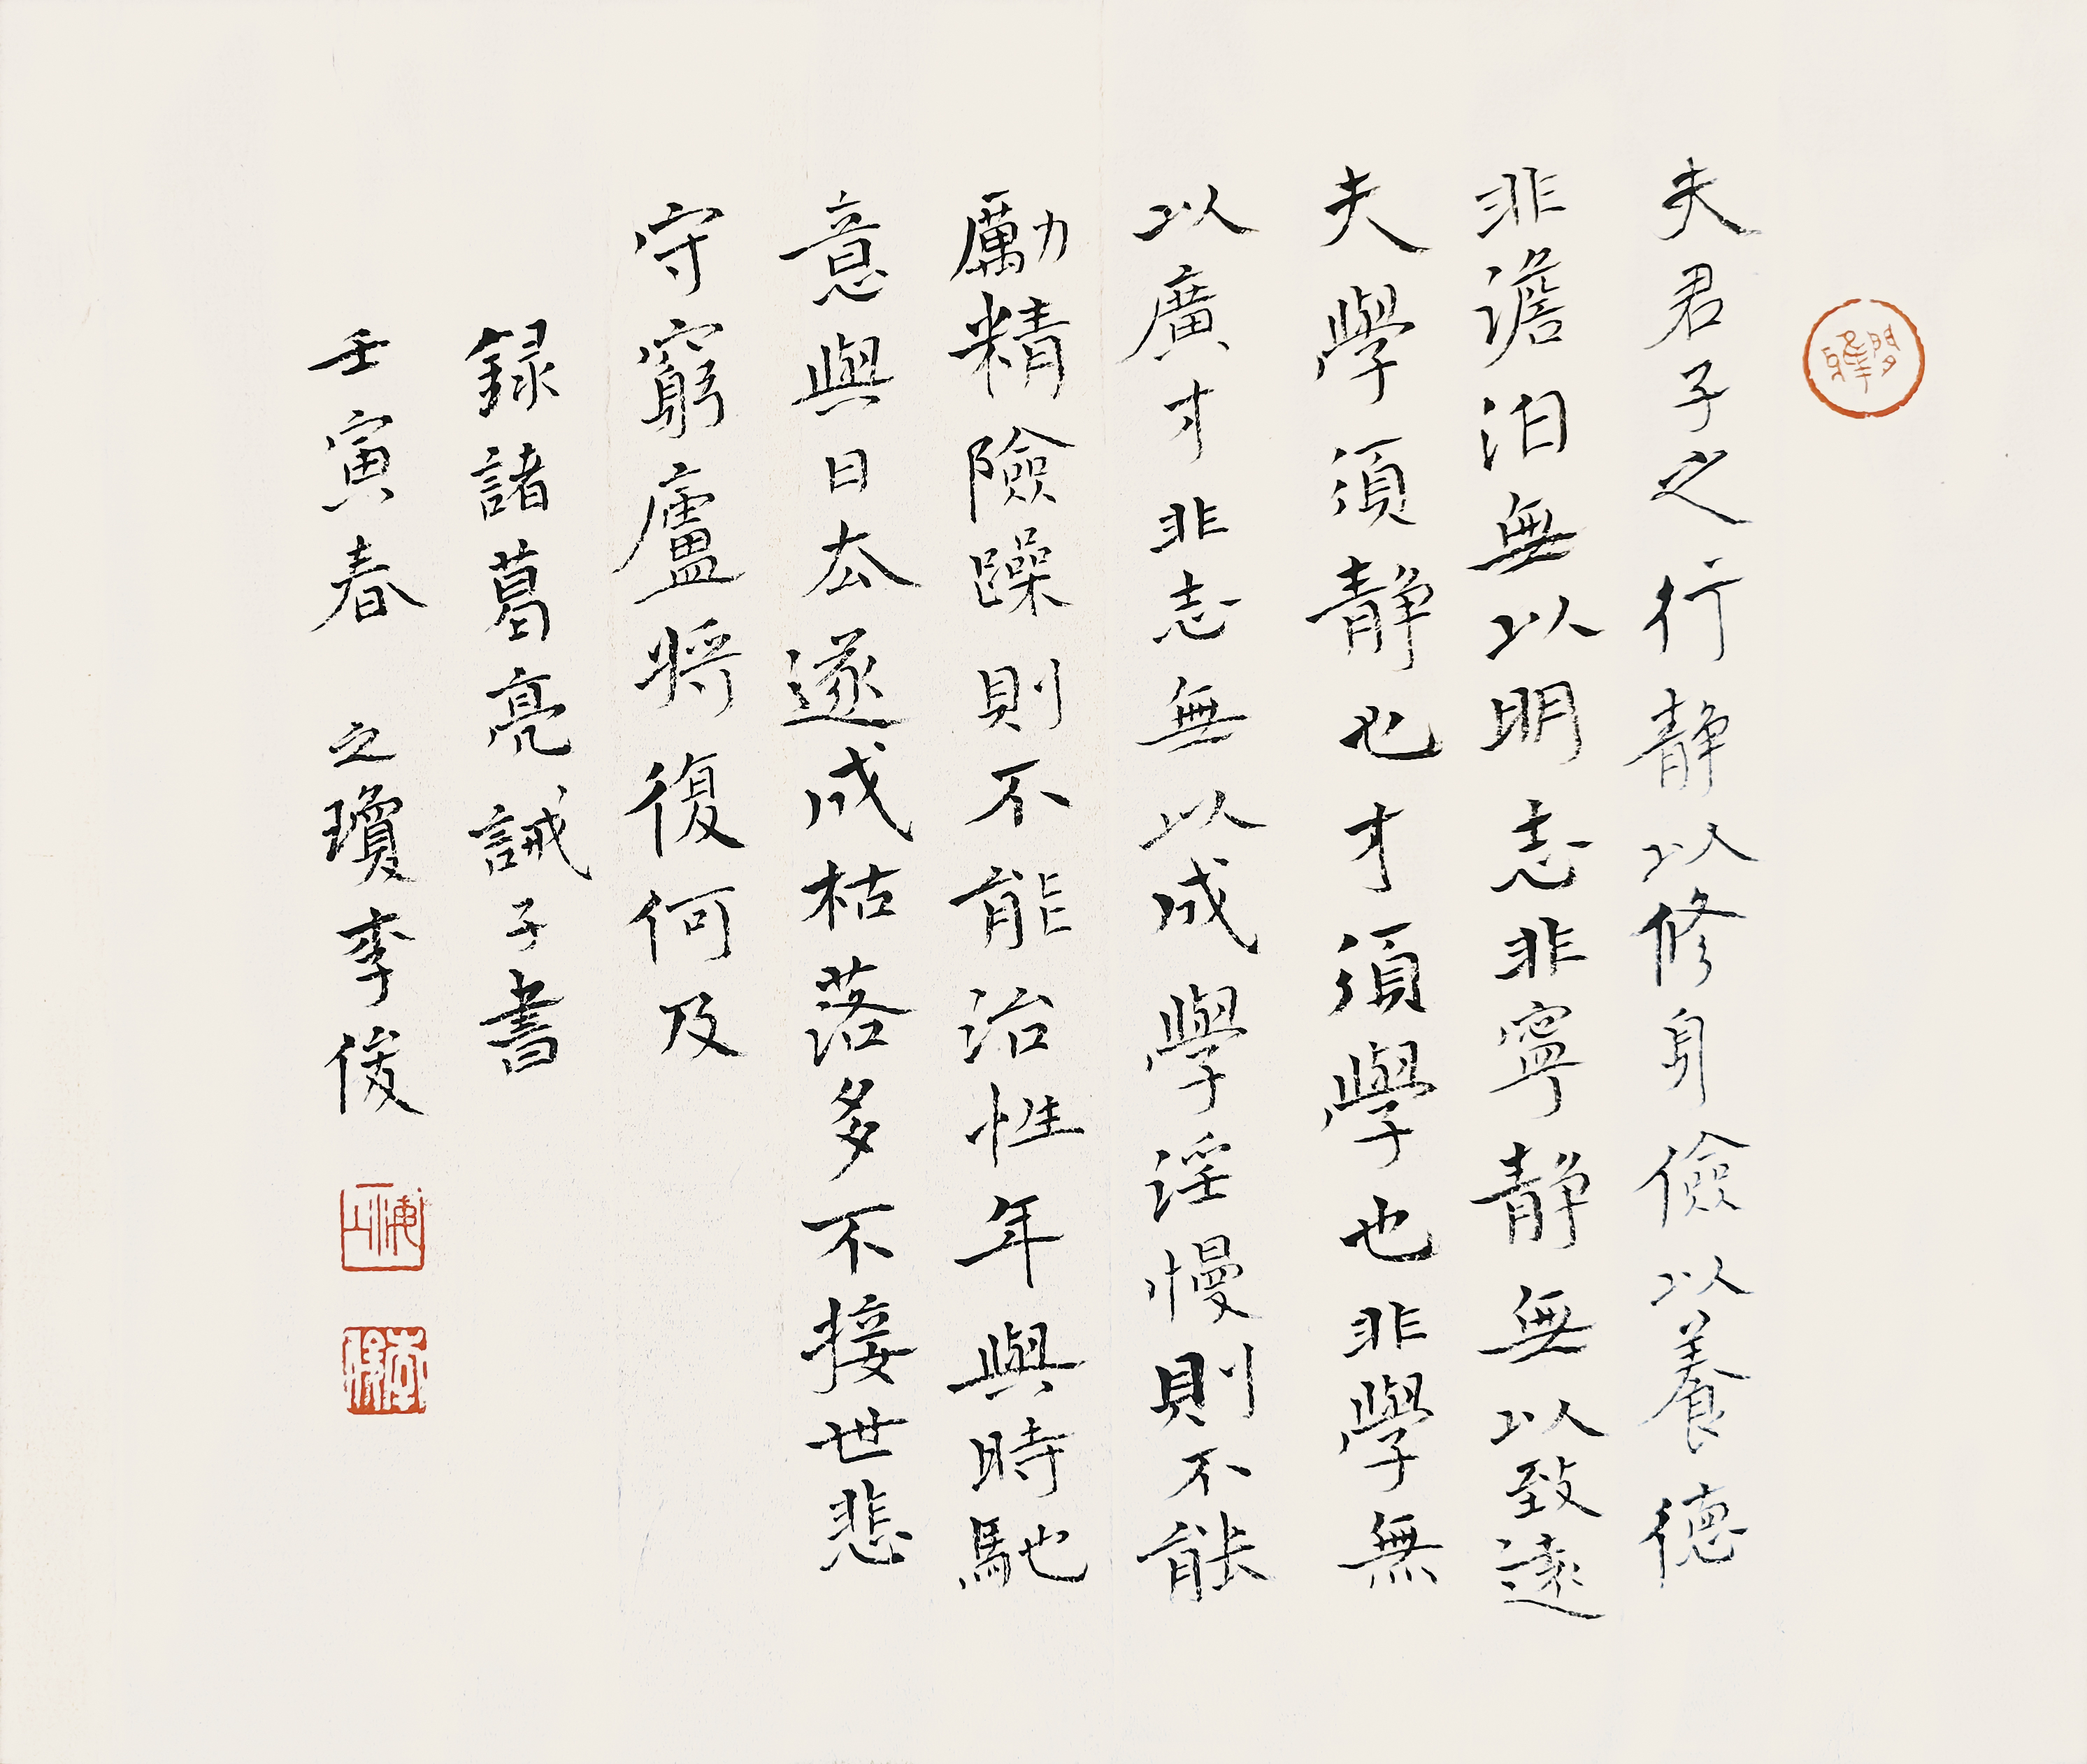 夫君子之行靜以修身儉以養德
非澹泊無以明志非寧靜無以致遠
夫學須靜也才須學也非學無
以廣才非志無以成學淫慢則不能
勵精險躁則不能治性年與時馳
意與日去遂成枯落多不接世悲
守窮廬將復何及
録諸葛亮誡子書
壬寅春 之瓊李俊